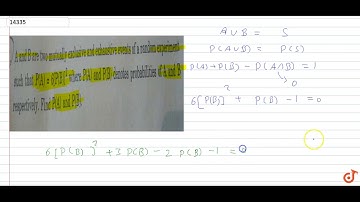 14335
A and B are two mutually exclusive and exhaustive events of a random experiment
such that P(A) = 6[P(B)]² where P(A) and P(B) denotes probabilities of A and B
respectively. Find P(A) and P(B).
A∪B = S
P(A∪B) = P(S)
P(A)+P(B) - P(A∩B) = 1
0
6[P(B)]² + P(B) - 1 = 0
6[P(B)]² + 3P(B) - 2P(B) - 1 = 0
doubtnut